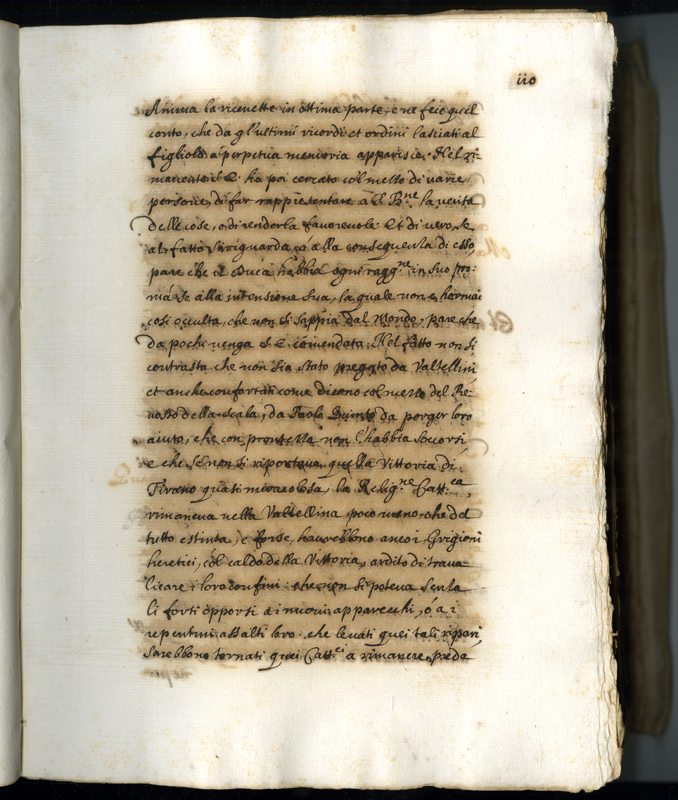 110
Anima la ricevette in ottima parte, e ne fece quel
conto, che da gl'ultimi ricordi et ordini lasciati al
figliolo a perpetua memoria apparisce. Nel ri-
manente S. E. ha poi cercato col mezzo di varie
persone, di far rappresentare a S. B.ne la verità
delle cose, o di renderla favorevole. Et di vero, se
al fatto si riguarda, o alla conseguenza di esso,
pare che il Duca habbia ogni ragg.ne in suo pro:
mà se alla intensione sua, la quale non è hormai
così occulta, che non si sappia dal mondo, pare che
da pochi venga S. E. comendata. Nel fatto non si
contrasta che non sia stato pregato da Valtellini,
et anche confortati come dicono col mezzo del Re-
della Scala, da Paolo Quinto da porger loro
aiuto, che con prontezza non l'habbia soccorsi
e che se non si riportava quella Vittoria di
Tirano quasi miracolosa, la Relig.ne Catt.ca,
rimaneva nella Valtellina poco meno che del
tutto estinta, e forse, haverebbono ancor i Grigioni
heretici, col caldo della Vittoria, ardito di trava-
licare i loro confini: che non si poteva senza
li forti opporsi a i nuovi apparecchi, ò a i
repentini assalti loro. che levati quei tali ripari
sarebbono tornati quei Catt.ci a rimanere preda